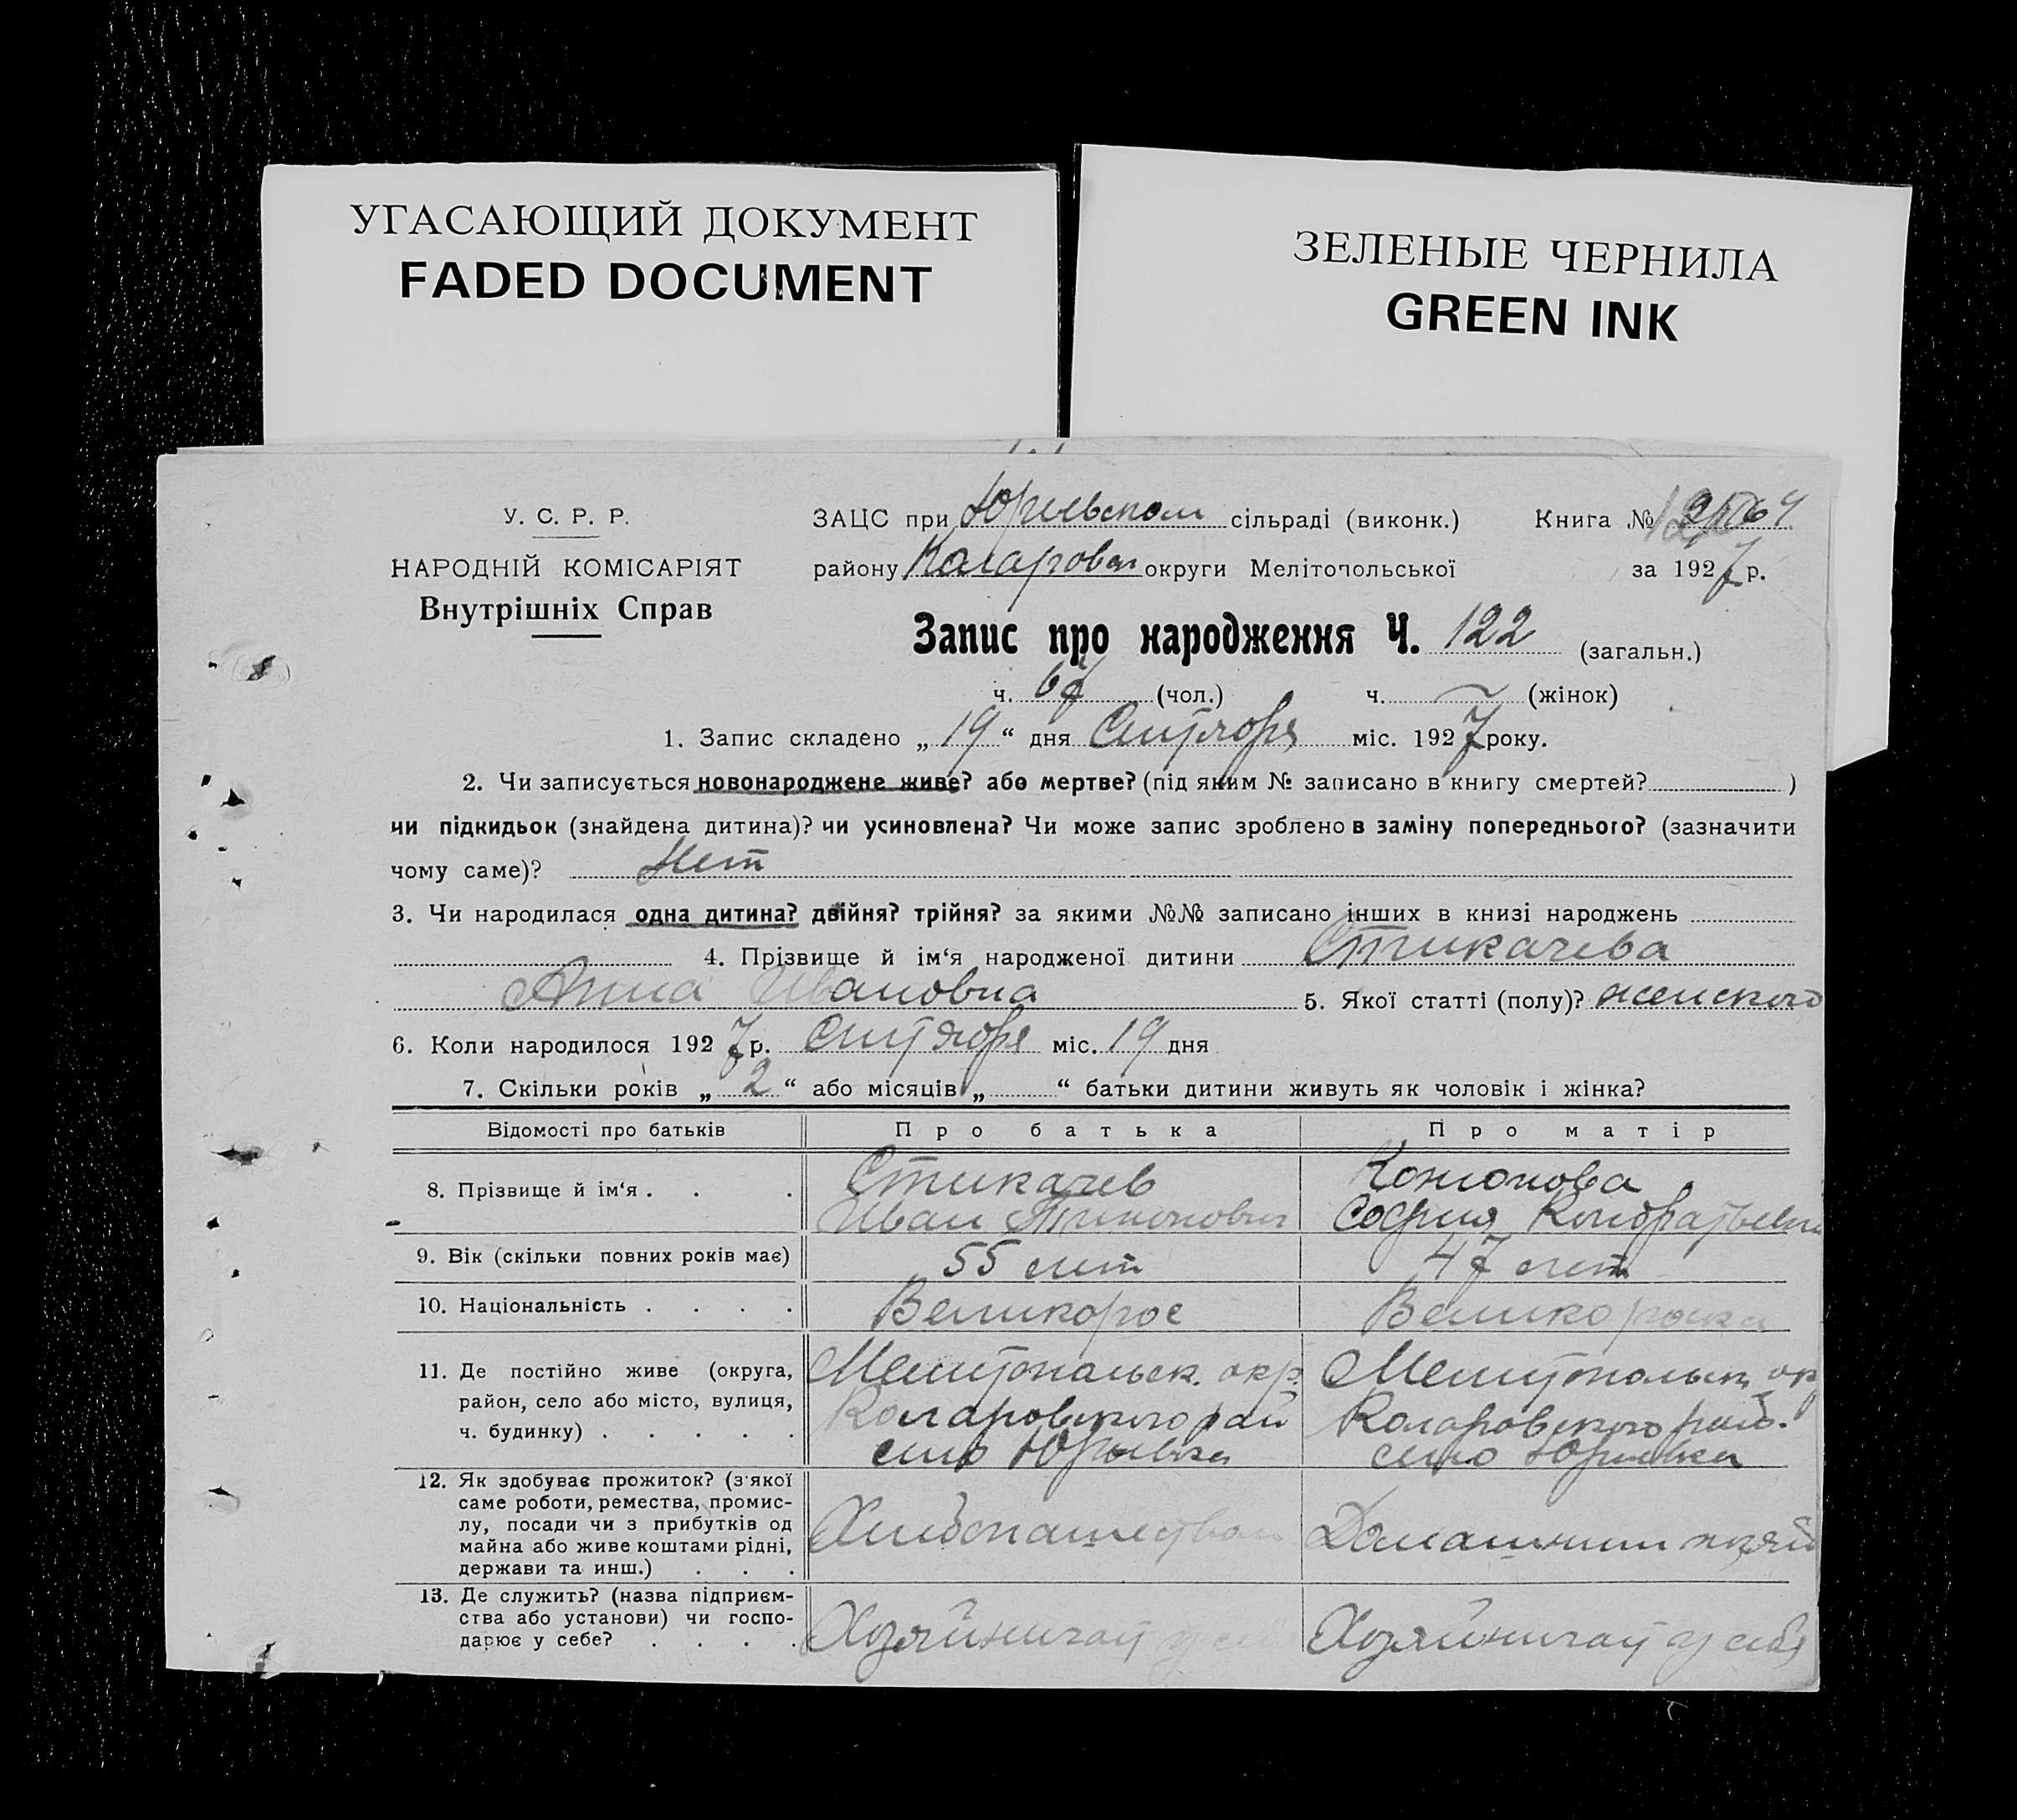 УГАСАЮЩИЙ ДОКУМЕНТ
FADED DOCUMENT
ЗЕЛЕНЫЕ ЧЕРНИЛА
GREEN INK
У. С. Р. Р.
НАРОДНІЙ КОМІСАРІЯТ
Внутрішніх Справ
ЗАЦС при Юрьевском сільраді (виконк.) Книга №
району Коларовск округи Мелітопольської за 1927 р.
Запис про народження Ч. 122 (загальн.)
ч. 67 (чол.) ч. — (жінок)
1. Запис складено „ 19 “ дня Сентября міс. 1927 року.
2. Чи записується новонароджене живе? або мертве? (під яким № записано в книгу смертей? )
чи підкидьок (знайдена дитина)? чи усиновлена? Чи може запис зроблено в заміну попереднього? (зазначити
чому саме)? Нет
3. Чи народилася одна дитина? двійня? трійня? за якими №№ записано інших в книзі народжень
4. Прізвище й ім‘я народженої дитини Стикачева
Анна Ивановна 5. Якої статті (полу)? женского
6. Коли народилося 1927 р. Сентября міс. 19 дня
7. Скільки років „ 2 “ або місяців „ “ батьки дитини живуть як чоловік і жінка?
Відомості про батьків Про батька Про матір
8. Прізвище й ім‘я . . . Стикачев Кононова
Иван София Кондратьевна
9. Вік (скільки повних років має) 55 лет 47 лет
10. Національність . . . . Великорос Великороска
11. Де постійно живе (округа, Мелитопольск. окр. Мелитопольск окр
район, село або місто, вулиця, Коларовского рай Коларовского рай.
ч. будинку) . . . . . село Юрьевка село Юрьевка
12. Як здобуває прожиток? (з'якої
саме роботи, ремества, промис-
лу, посади чи з прибутків од Хлебопашеством Домашним хозяй
майна або живе коштами рідні,
держави та инш.) . . .
13. Де служить? (назва підприєм-
ства або установи) чи госпо- Хозяйничает у себя Хозяйничает у себя
дарює у себе? . . . .